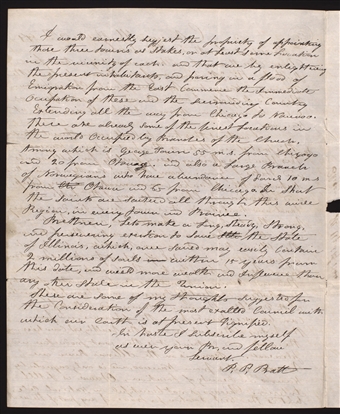 I would earnestly suggest the propriety of appointing
those three towns as Stakes, or at least some location
in the vicinity of each. and that we by enlightening
the present inhabitants, and pouring in a flood of
Emigration from the East Commence the immediate
Ocupation of these and the surrounding Country
Extending all the way from Chicago to Nauvoo.
There are already some of the finest locations in
the world Occupied by branches of the Church,
Among which is George town 55 miles from Chicago
and 20 from Ottowa, and also a large Branch
of Norwegians who have abundance of Land 10 ms
from Ottowa and 65 from Chicago. In Short
the Saints are scattered all through this whole
Region, in every Town and Prairee.
Bretheren, lets make a long, steady, strong,
and persevering exertion to save the State
of Illinois, which, once saved may easily Contain
2 millions of Saints within 10 years from
this date, and wield more wealth and influence than
any other State in the Union.
These are some of my thoughts suggested for
the Consideration of the most exalted Council with
which our earth is at present dignified.
In haste I subscribe myself
as ever your friend and fellow
Servant.
P. P. Pratt